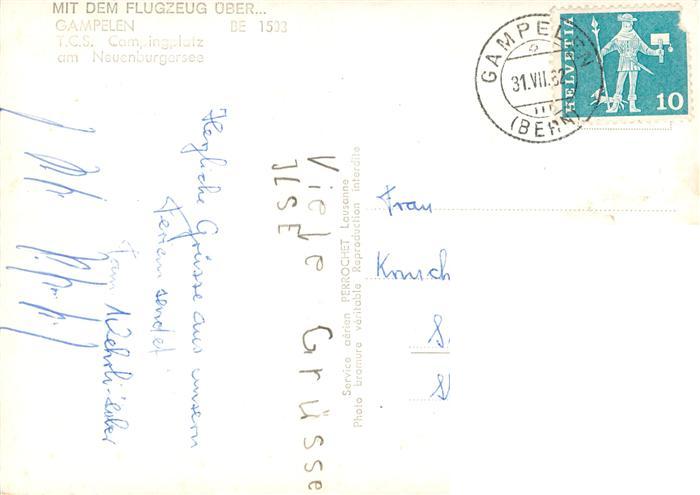 MIT DEM FLUGZEUG ÜBER...
GAMPELEN BE 1503
T.C.S. Campingplatz
am Neuenburgersee
GAMPELEN
31.VII.62
(BERN)
HELVETIA
10
Herzliche Grüsse aus unsern
Ferien sendet
Fam
Viele Grüsse
ILSE
Service aérien PERROCHET Lausanne
Photo bromure véritable Reproduction interdite
Frau